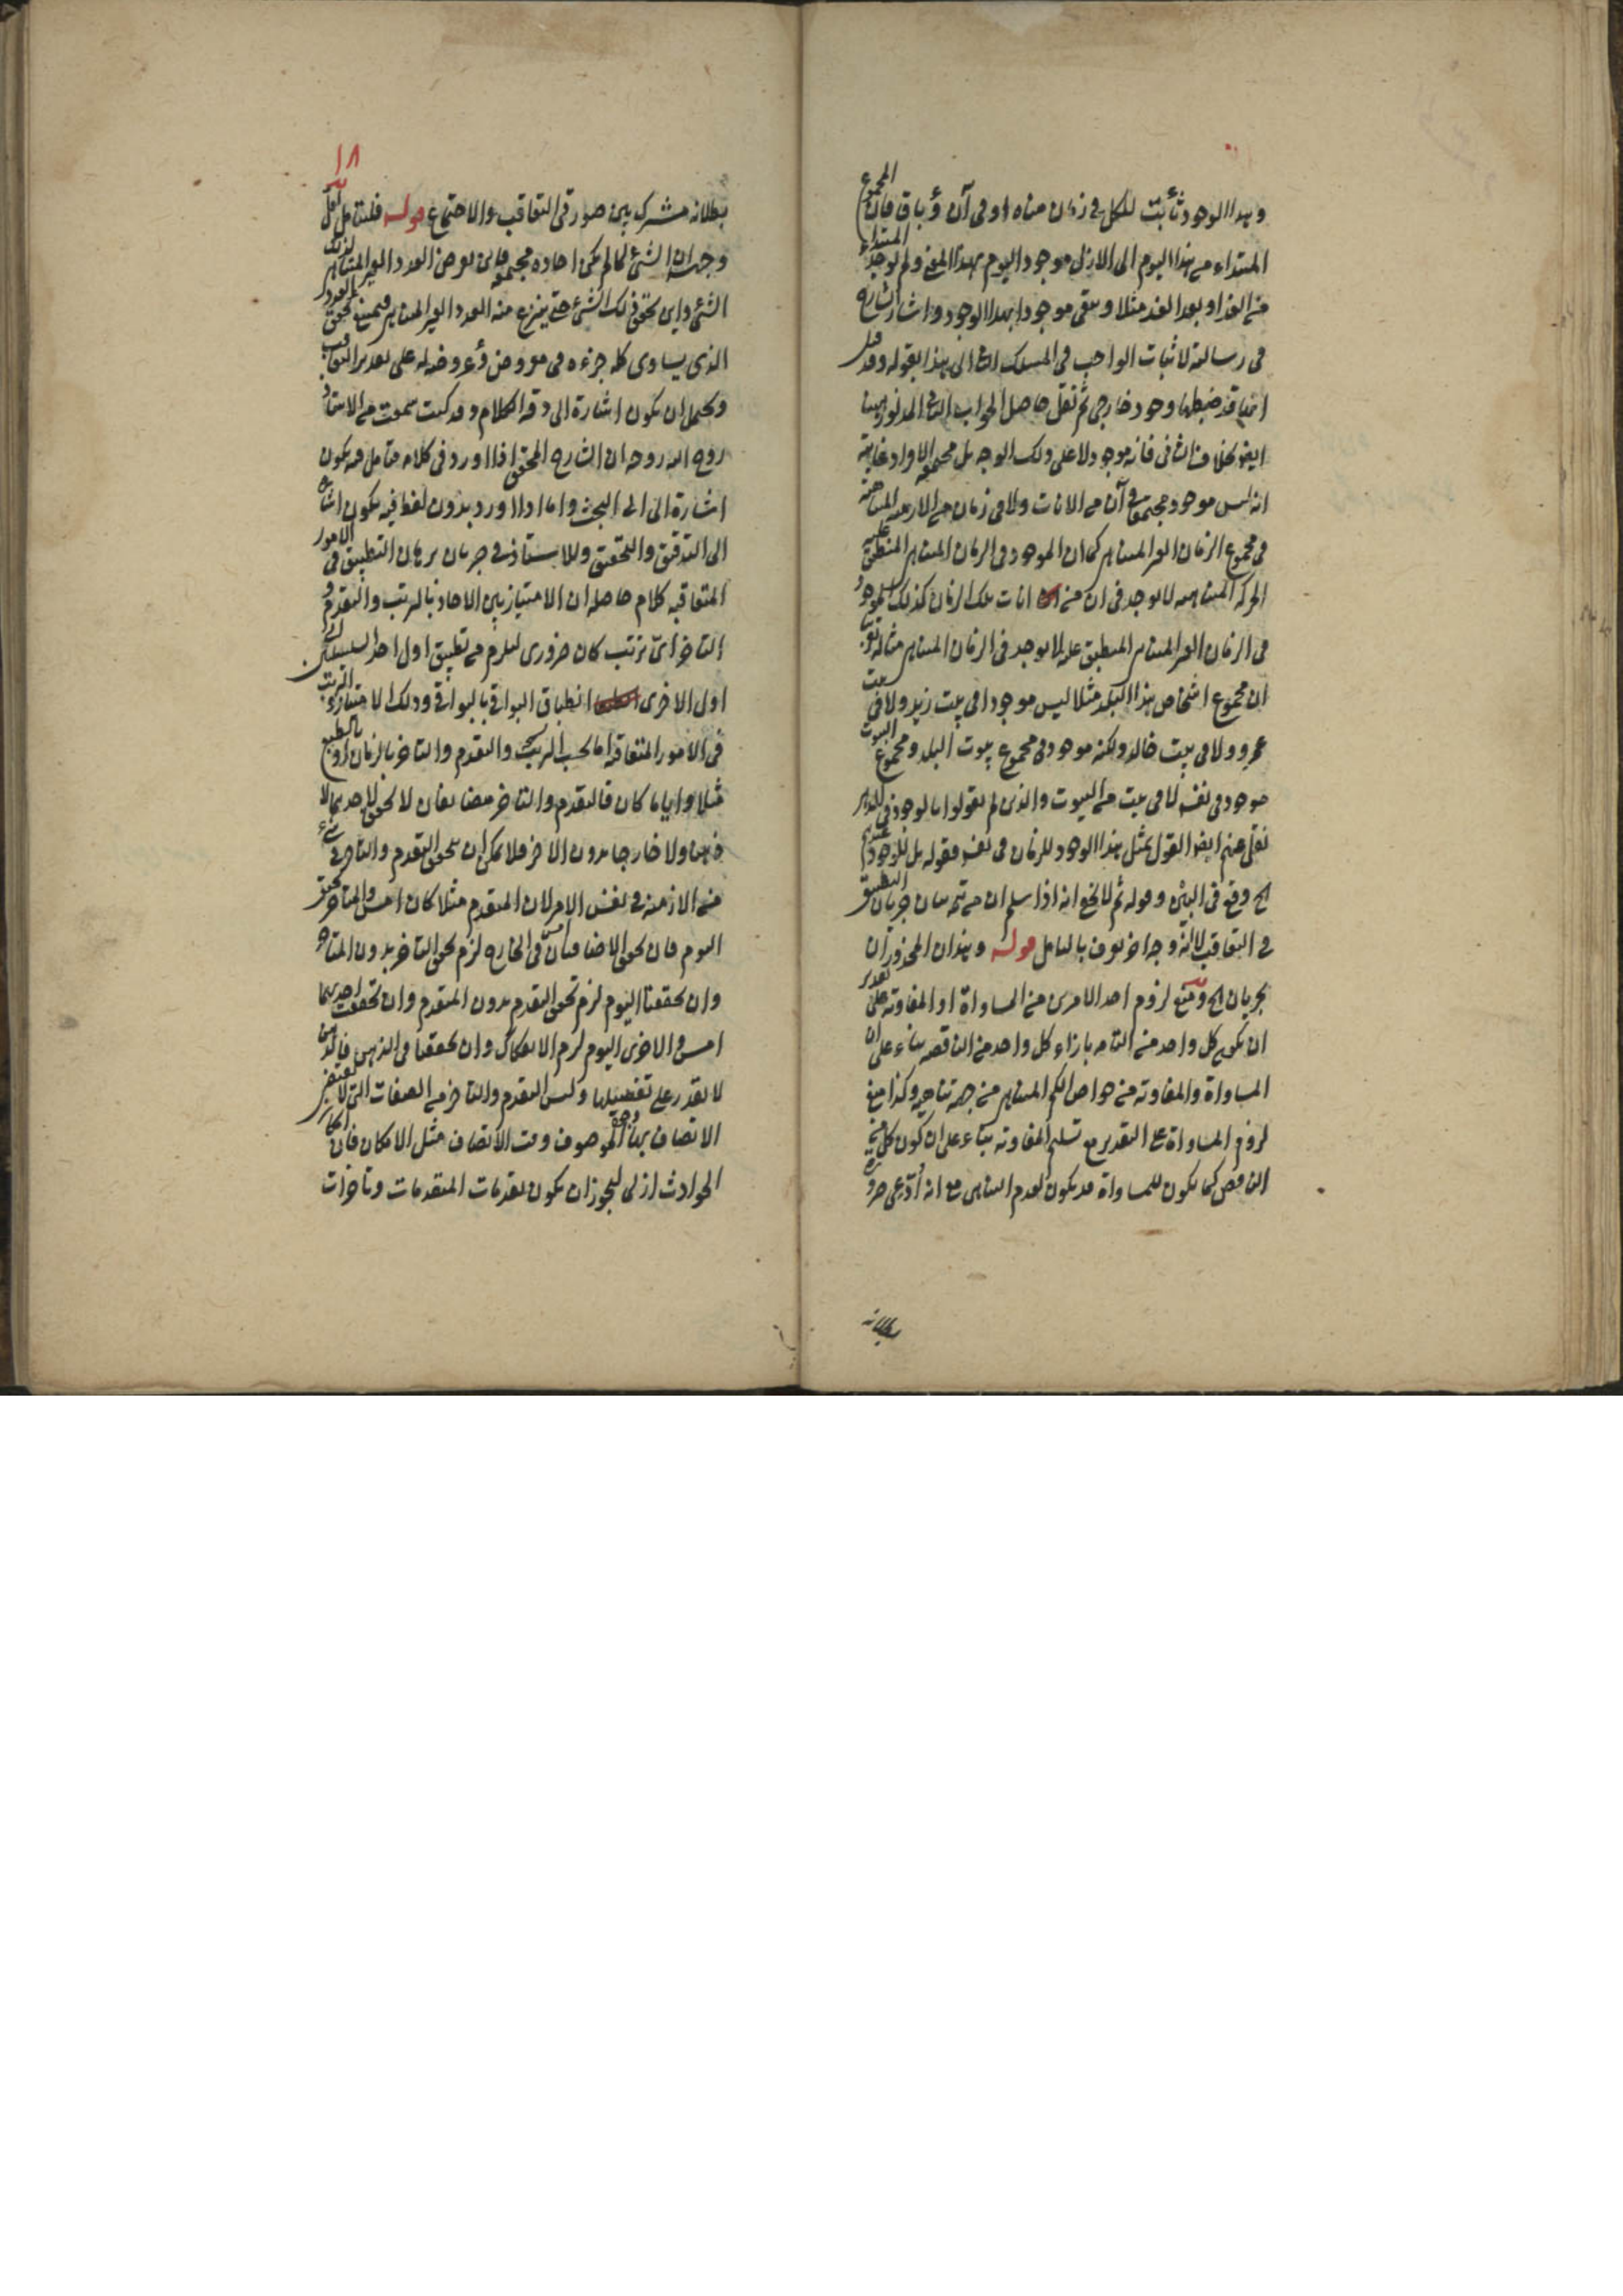 وبهذا الوجود ثابت للكل في زمان متناه او في آن وباق فان المجموع
المبتداء من هذا اليوم الى الازل موجود اليوم بهذا المعنى ولم يوجد المبتداء
من الغد او بعد الغد مثلا ويبقى موجودا بهذا الوجود واشار الشارح
في رسالته لاثبات الواجب في المسلك الى هذا بقوله وقد
ضبطها وجود خارجي ثم نقل حاصل الجواب
ايضا بخلاف الثاني فانه موجود لا على ذلك الوجه بل مجتمعة الافراد غايته
انه ليس موجود مجتمعا في آن من الانات ولا في زمان من الازمنة المتناهية
في مجموع الزمان الغير المتناهي كما ان الموجود في الزمان المتناهي المنطبق عليه
الحركة المتناهية لا يوجد في ان من انات تلك الزمان كذلك الموجود
في الزمان الغير المتناهي المنطبق عليه لا يوجد في الزمان المتناهي مثاله
ان مجموع اشخاص هذا البلد مثلا ليس موجودا في بيت زيد ولا في بيت
عمرو ولا في بيت خالد ولكنه موجود في مجموع بيوت البلد ومجموع البيوت
موجود في نفسه لا في بيت من البيوت والذين لم يقولوا بالوجود في
نقل عنهم ايضا القول بمثل هذا الوجود للزمان في نفسه فقوله بل للوجود
الخ وقع في البين وقوله ثم لا يخفى انه اذا سلم ان من تتمة بيان جريان التطبيق
في التعاقب لا انه وجه اخر يعرف بالتامل قوله وهذان المحذوران
يجريان الخ ومنع لزوم احد الامرين من المساواة او المفاوتة على تقدير
ان يكون كل واحد من التامه بازاء كل واحد من الناقصه بناء على ان
المساواة والمفاوته من خواص الكم المتناهي من جهة تناهيه وكذا منع
لزوم المساواة على التقدير مع تسليم المفاوته بناء على ان كون كل
الناقص كما يكون للمساواة قد يكون لعدم التناهي مع انه ادعى
بطلانه
١٨
بطلانه مشترك بين صورتي التعاقب والاجتماع قوله فليتامل لعل
وجهه ان الشئ لما لم يكن احاده مجتمعة فاين يعرض العدد الغير المتناهي لذلك
الشئ واين تحقق ذلك الشئ حتى ينتزع منه العدد الغير المتناهي فيمنع تحقق العدد
الذي يساوي كله جزءه في معروض وعروضه له على تقدير التعاقب
ويحتمل ان يكون اشارة الى دقة الكلام وقد كنت سمعت من الاستاد
روح الله روحه ان الشارح المحقق اذا اورد في كلامه فتامل فيه يكون
اشارة الى البحث واما اذا اورد بدون لفظ فيه يكون اشارة
الى التدقيق والتحقيق وللاستاذ في جريان برهان التطبيق في الامور
المتعاقبه كلام حاصله ان الامتياز بين الاحاد بالترتب والتقدم و
التاخر اى ترتب كان ضروري ليلزم من تطبيق اول احد السلسلتين الى
اول الاخرى انطباق البواقي بالبواقي وذلك الامتياز والترتب
في الامور المتعاقبه اما بحسب الترتيب والتقدم والتاخر بالزمان او بالطبع
مثلا واياما كان فالتقدم والتاخر متضايفان لا تحقق لاحدهما لا
ذهنا ولا خارجا بدون الاخر فلا يمكن ان يتحقق التقدم والتاخر في شئ
من الازمنه في نفس الامر لان المتقدم مثلا كان امس والمتاخر تحقق
اليوم فان تحقق الاضافتان امس في الخارج لزم تحقق التاخر بدون المتاخر
وان تحققتا اليوم لزم تحقق التقدم بدون المتقدم وان تحققت احديهما
امس والاخرى اليوم لزم الانفكاك وان تحققتا في الذهن فالذهن
لا يقدر على تفصيلها وليس التقدم والتاخر من الصفات التي لا يقتضي
الاتصاف بها الموصوف وقت الاتصاف مثل الامكان فان امكان
الحوادث ازلي ليجوز ان يكون تقدمات المتقدمات وتاخرات